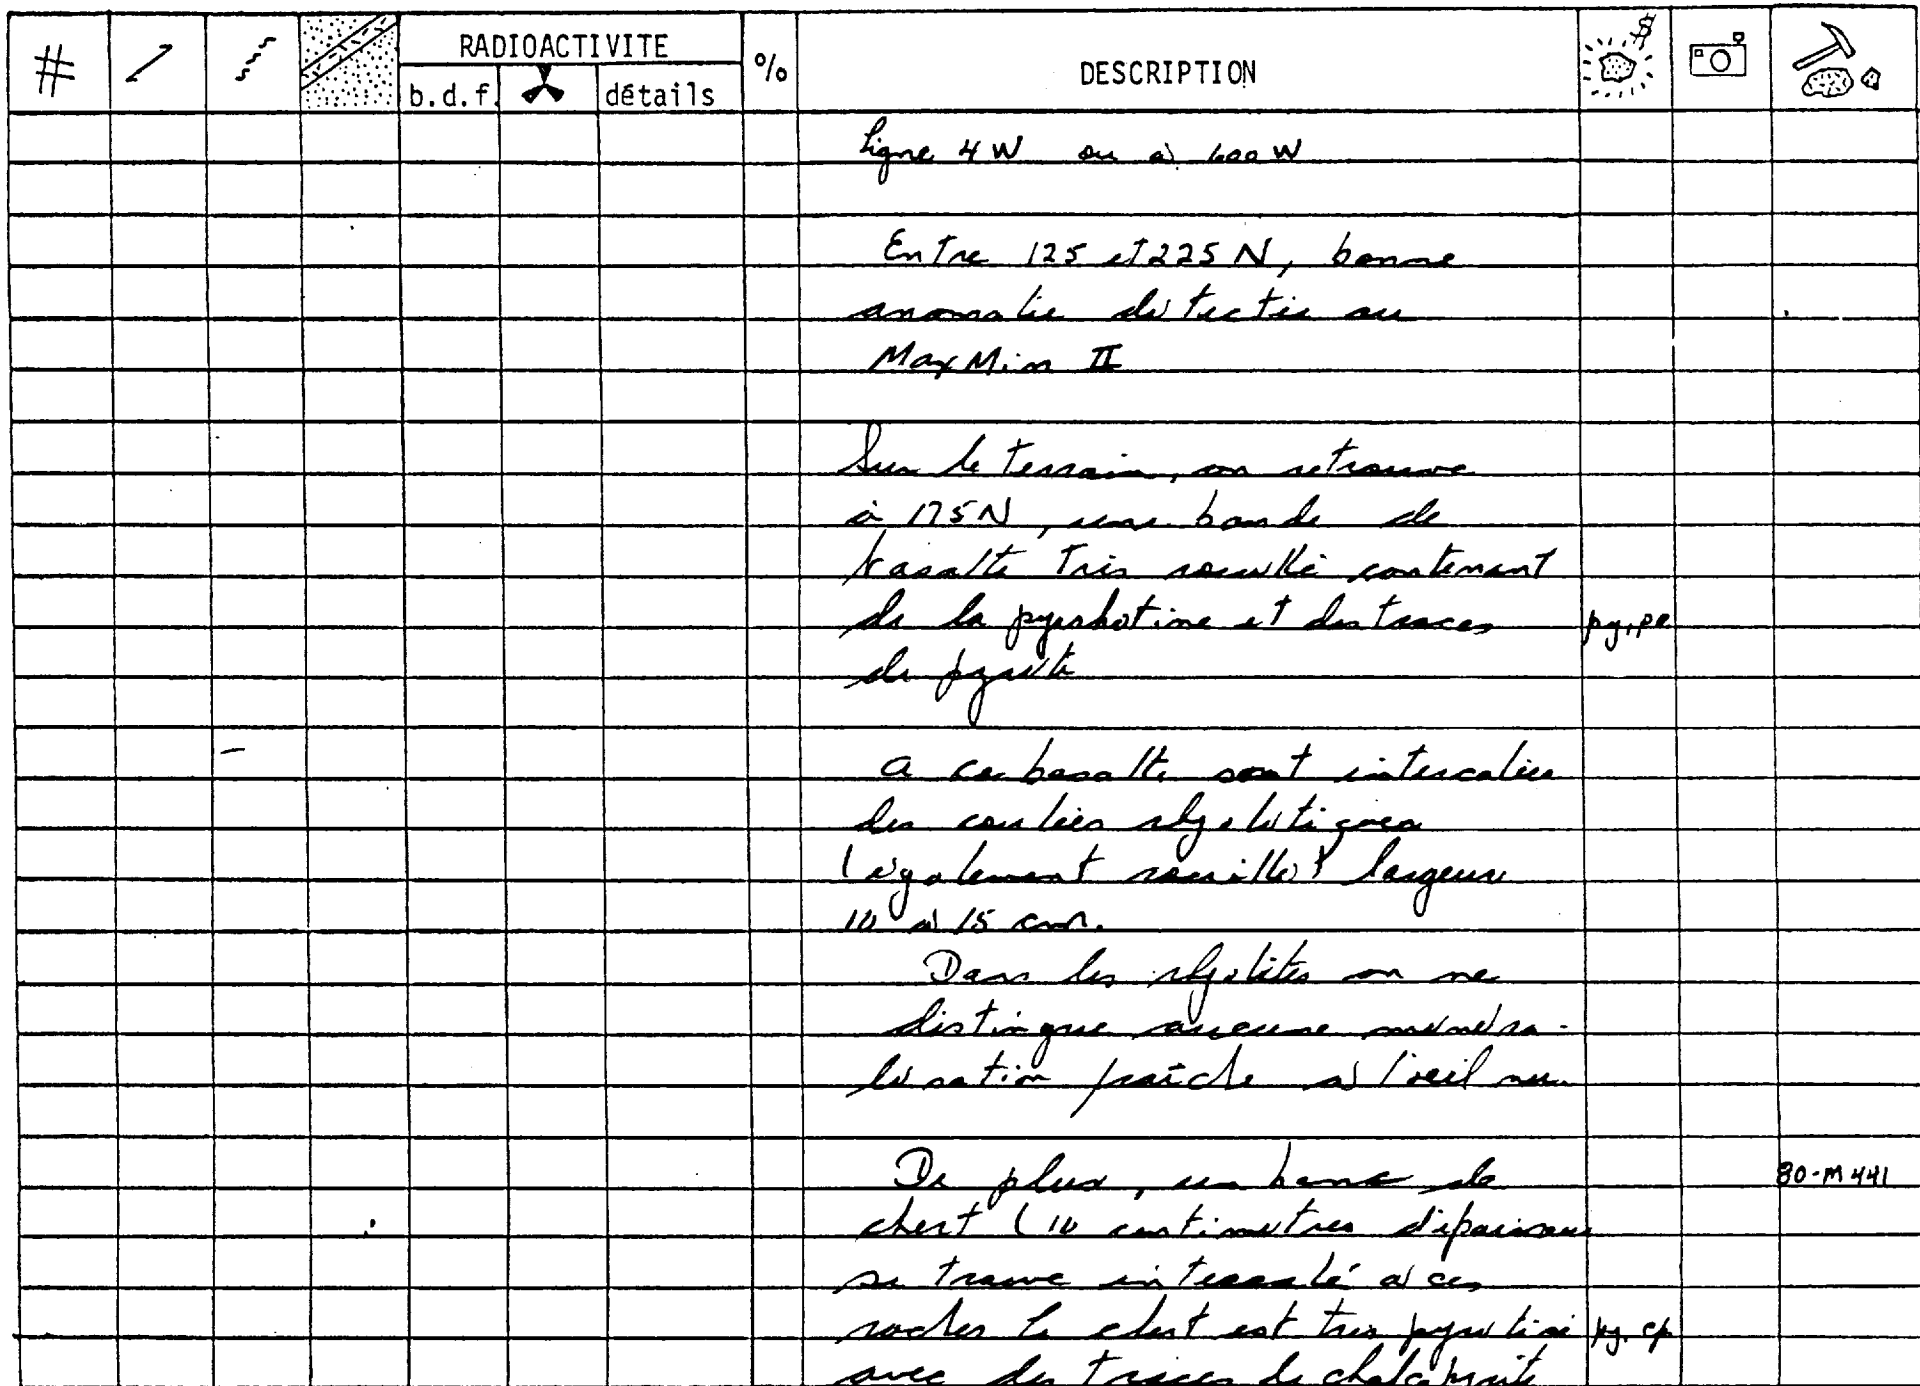 #
RADIOACTIVITE
b.d.f.
détails
%
DESCRIPTION
$
ligne 4 W ou à 400 W
Entre 125 et 225 N, bonne
anomalie détectée au
MaxMin II
Sur le terrain, on retrouve
à 175N, une bande de
basalte très rouillé contenant
de la pyrrhotine et des traces py, po
de pyrite
A ce basalte sont intercalées
des coulées rhyolitiques
(également rouillé) largeur
10 à 15 cm.
Dans les rhyolites on ne
distingue aucune minéra-
lisation fraîche à l'oeil nu.
De plus, un banc de 80-M441
chert (10 centimètres d'épaisseur
se trouve intercalé à ces
roches le chert est très pyritisé py. cp
avec des traces de chalcopyrite